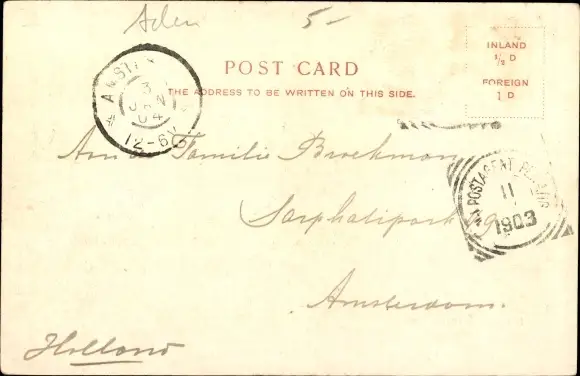 Aden 5-
INLAND
½ D
FOREIGN
1 D
POST CARD
THE ADDRESS TO BE WRITTEN ON THIS SIDE.
AMSTER
3
JAN
04
12-6V
POSTAGENT
11
1903
An de Familie Broekman
Sarphatipark
Amsterdam.
Holland